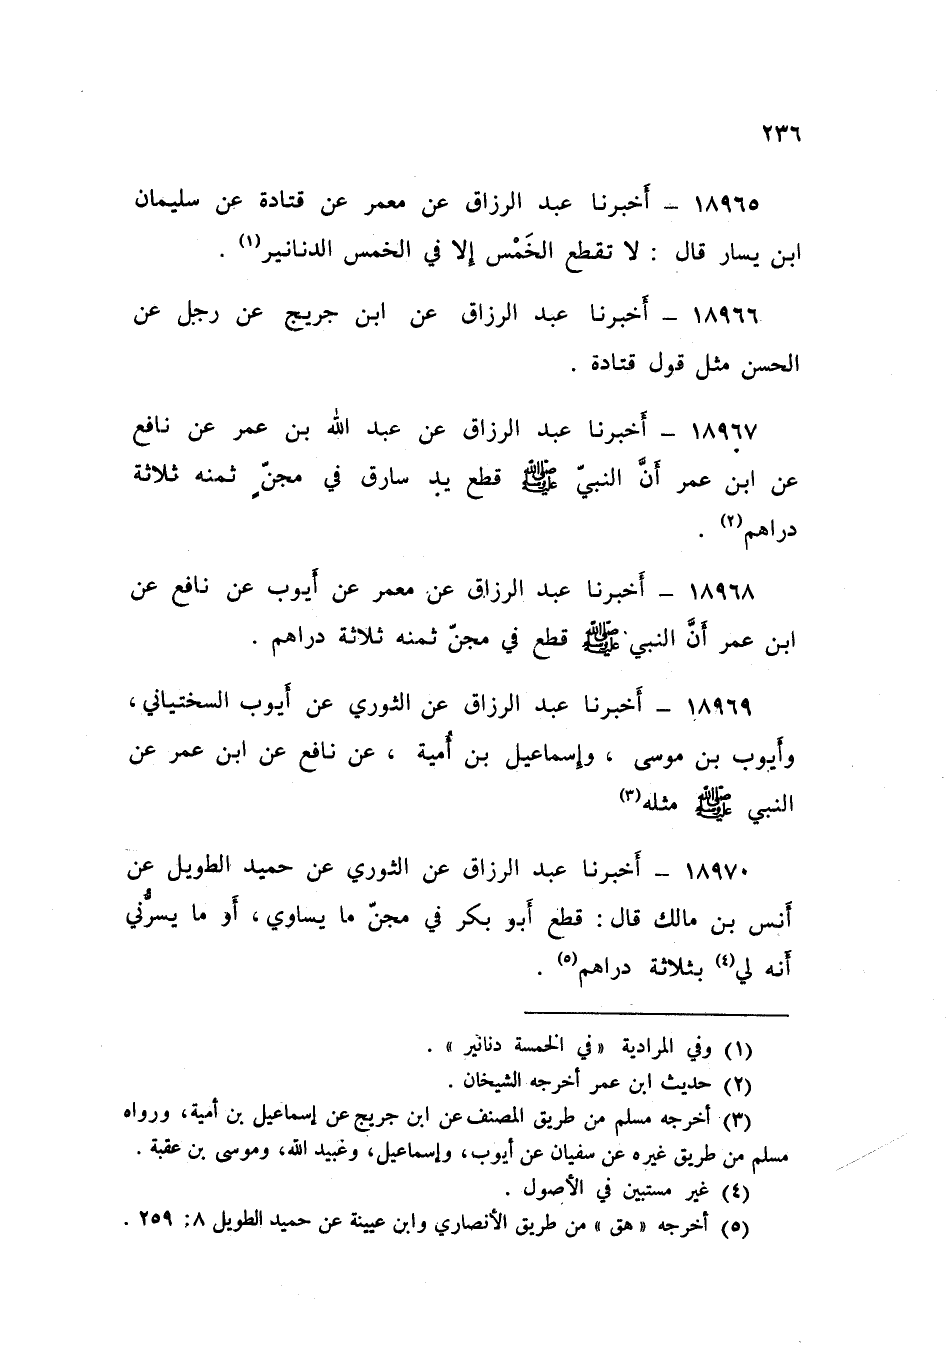 ٢٣٦
١٨٩٦٥ – أَخبرنا عبد الرزاق عن معمر عن قتادة عن سليمان
ابن يسار قال : لا تقطع الخَمْس إلا في الخمس الدنانير(١) .
١٨٩٦٦ – أَخبرنا عبد الرزاق عن ابن جريج عن رجل عن
الحسن مثل قول قتادة .
١٨٩٦٧ – أَخبرنا عبد الرزاق عن عبد الله بن عمر عن نافع
عن ابن عمر أَنَّ النبيّ ﷺ قطع يد سارق في مجنٍّ ثمنه ثلاثة
دراهم(٢) .
١٨٩٦٨ – أَخبرنا عبد الرزاق عن معمر عن أَيوب عن نافع عن
ابن عمر أَنَّ النبي ﷺ قطع في مجنّ ثمنه ثلاثة دراهم .
١٨٩٦٩ – أَخبرنا عبد الرزاق عن الثوري عن أَيوب السختياني ،
وأَيوب بن موسى ، وإسماعيل بن أُمية ، عن نافع عن ابن عمر عن
النبي ﷺ مثله(٣)
١٨٩٧٠ – أَخبرنا عبد الرزاق عن الثوري عن حميد الطويل عن
أَنس بن مالك قال : قطع أَبو بكر في مجنّ ما يساوي ، أَو ما يسرُّني
أَنه لي(٤) بثلاثة دراهم(٥) .
(١) وفي المرادية « في الخمسة دنانير » .
(٢) حديث ابن عمر أخرجه الشيخان .
(٣) أخرجه مسلم من طريق المصنف عن ابن جريج عن إسماعيل بن أمية ، ورواه
مسلم من طريق غيره عن سفيان عن أيوب ، وإسماعيل ، وعبيد الله ، وموسى بن عقبة .
(٤) غير مستبين في الأصول .
(٥) أخرجه « هق » من طريق الأنصاري وابن عيينة عن حميد الطويل ٨: ٢٥٩ .